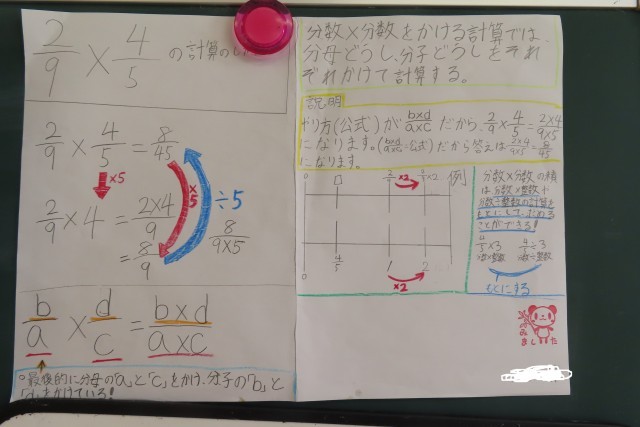 2/9 × 4/5 の計算のし
2/9 × 4/5 = 8/45
×5
×5
÷5
2/9 × 4 = 2×4/9
= 8/9
8/9×5
b/a × d/c = b×d/a×c
○最後的に分母の「a」と「c」をかけ、分子の「b」と
「d」をかけている!
分数×分数をかける計算では、
分母どうし、分子どうしをそれ
ぞれかけて計算する。
説明
やり方(公式)が b×d/a×c だから、2/9 × 4/5 = 2×4/9×5
になります。(b×d/a×c=公式)だから答えは 2×4/9×5 = 8/45
になります。
0
×2
例
0
4/5
1
2
×2
分数×分数の積
は分数×整数や
分数÷整数の計算を
もとにして、求める
ことができる!
÷3
分数×整数
分数÷整数
もとにする
ました